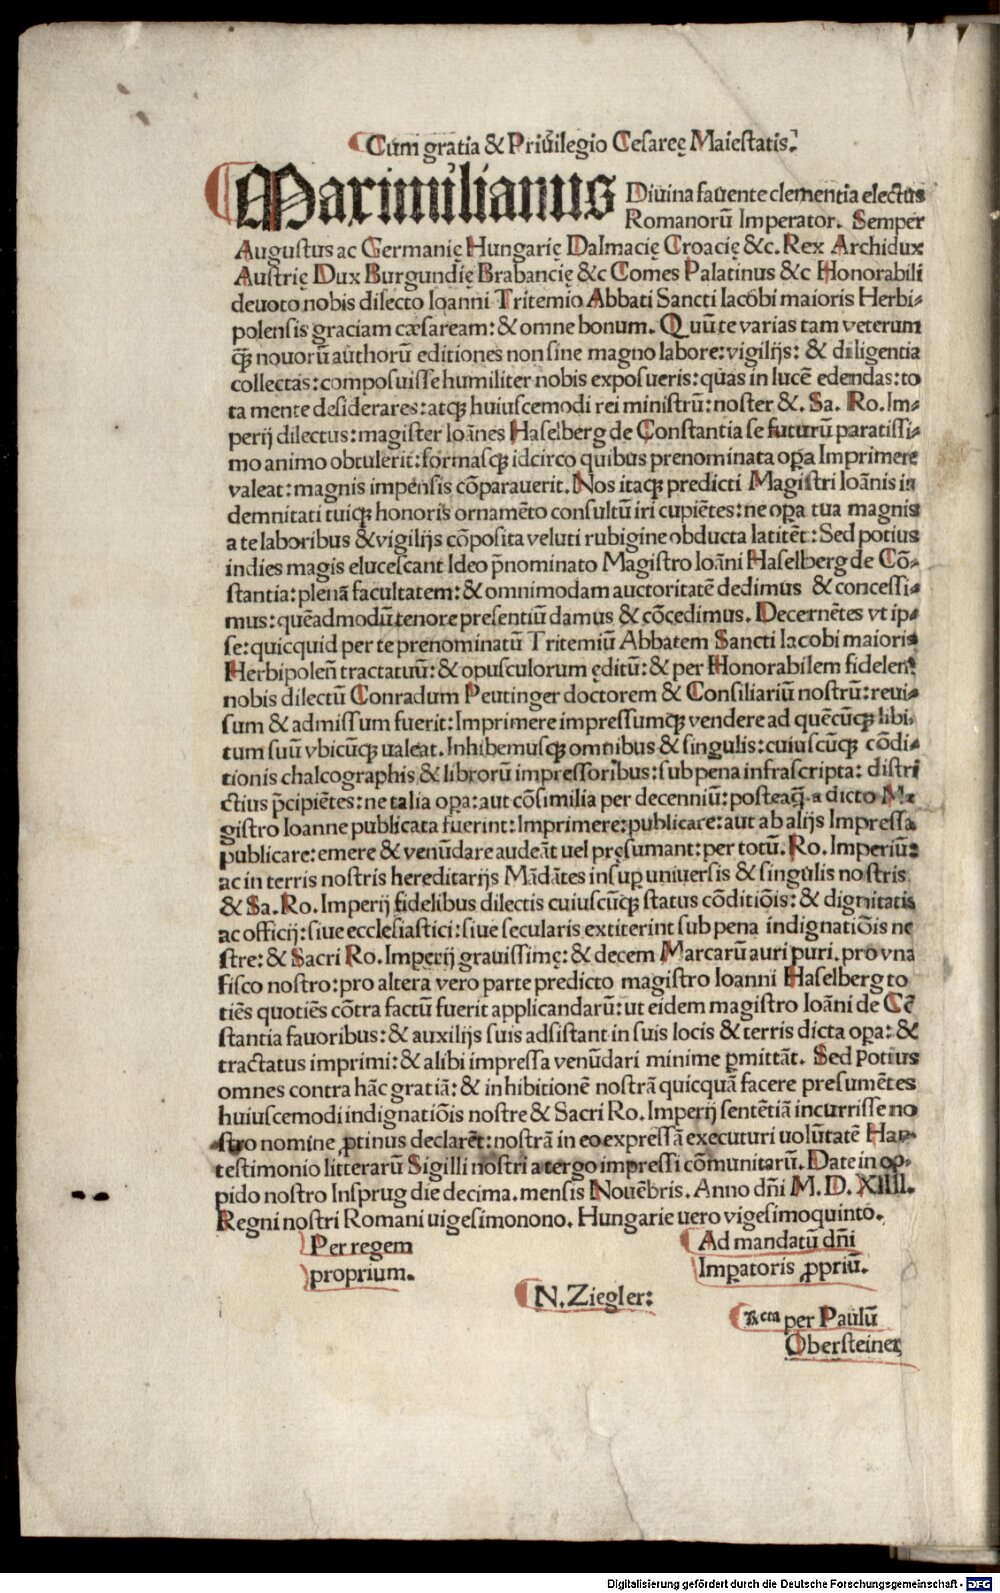 Cum gratia & Priuilegio Cesareę Maiestatis.
Maximilianus Diuina fauente clementia electus
Romanorū Imperator. Semper
Augustus ac Germanię Hungarię Dalmacię Croacię &c. Rex Archidux
Austrię Dux Burgundię Brabancię &c Comes Palatinus &c Honorabili
deuoto nobis dilecto Ioanni Tritemio Abbati Sancti Iacobi maioris Herbi-
polensis graciam cæsaream: & omne bonum. Quū te varias tam veterum
q̄ꝫ nouorū authorū editiones non sine magno labore: vigilijs: & diligentia
collectas: composuisse humiliter nobis exposueris: quas in lucē edendas: to
ta mente desiderares: atqꝫ huiuscemodi rei ministrū: noster &. Sa. Ro. Im-
perij dilectus: magister Ioānes Haselberg de Constantia se futurū paratissi-
mo animo obtulerit: formasqꝫ idcirco quibus prenominata oꝑa Imprimere
valeat: magnis impensis cōparauerit. Nos itaqꝫ predicti Magistri Ioānis in
demnitati tuiqꝫ honoris ornamēto consultū iri cupiētes: ne oꝑa tua magnis
a te laboribus & vigilijs cōposita veluti rubigine obducta latitēt: Sed potius
indies magis elucescant Ideo p̄nominato Magistro Ioāni Haselberg de Cō-
stantia: plenā facultatem: & omnimodam auctoritatē dedimus & concessi-
mus: quēadmodū tenore presentiū damus & cōcedimus. Decernētes vt ip-
se: quicquid per te prenominatū Tritemiū Abbatem Sancti Iacobi maioris
Herbipoleñ tractatuū: & opusculorum ęditū: & per Honorabilem fidelem
nobis dilectū Conradum Peutinger doctorem & Consiliariū nostrū: reui-
sum & admissum fuerit: Imprimere impressumqꝫ vendere ad quēcūqꝫ libi-
tum suū vbicūqꝫ ualeat. Inhibemusqꝫ omnibus & singulis: cuiuscūqꝫ cōdi-
tionis chalcographis & librorū impressoribus: sub pena infrascripta: distri
ctius p̄cipiētes: ne talia oꝑa: aut cōsimilia per decenniū: posteaq̄ a dicto Ma
gistro Ioanne publicata fuerint: Imprimere: publicare: aut ab alijs Impressa
publicare: emere & venūdare audeāt uel pręsumant: per totū. Ro. Imperiū:
ac in terris nostris hereditarijs Mādātes insuꝑ uniuersis & singulis nostris
& Sa. Ro. Imperij fidelibus dilectis cuiuscūqꝫ status cōditiōis: & dignitatis
ac officij: siue ecclesiastici: siue secularis extiterint sub pena indignatiōis no
stre: & Sacri Ro. Imperij grauissimę: & decem Marcarū auri puri. pro vna
fisco nostro: pro altera vero parte predicto magistro Ioanni Haselberg to
tiēs quotiēs cōtra factū fuerit applicandarū: ut eidem magistro Ioāni de Cō
stantia fauoribus: & auxilijs suis adsistant in suis locis & terris dicta oꝑa: &
tractatus imprimi: & alibi impressa venūdari minime ꝑmittāt. Sed potius
omnes contra hāc gratiā: & inhibitionē nostrā quicquā facere presumētes
huiuscemodi indignatiōis nostre & Sacri Ro. Imperij sentētiā incurrisse no
stro nomine ꝓtinus declarēt: nostrā in eo expressā executuri uolūtatē Har-
testimonio litterarū Sigilli nostri a tergo impressi cōmunitarū. Date in op-
pido nostro Insprug die decima. mensis Nouēbris. Anno dñi M. D. XIIII.
Regni nostri Romani uigesimonono. Hungarie uero vigesimoquinto.
Per regem
proprium.
Ad mandatū dñi
Imꝑatoris ꝓpriū.
N. Ziegler:
per Paulū
Obersteiner
Digitalisierung gefördert durch die Deutsche Forschungsgemeinschaft - DFG